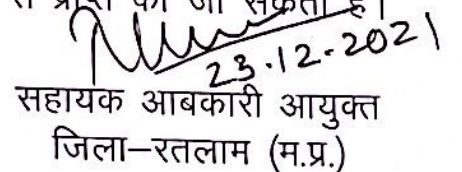 प्राप्त की जा सकती है।
23.12.2021
सहायक आबकारी आयुक्त
जिला–रतलाम (म.प्र.)